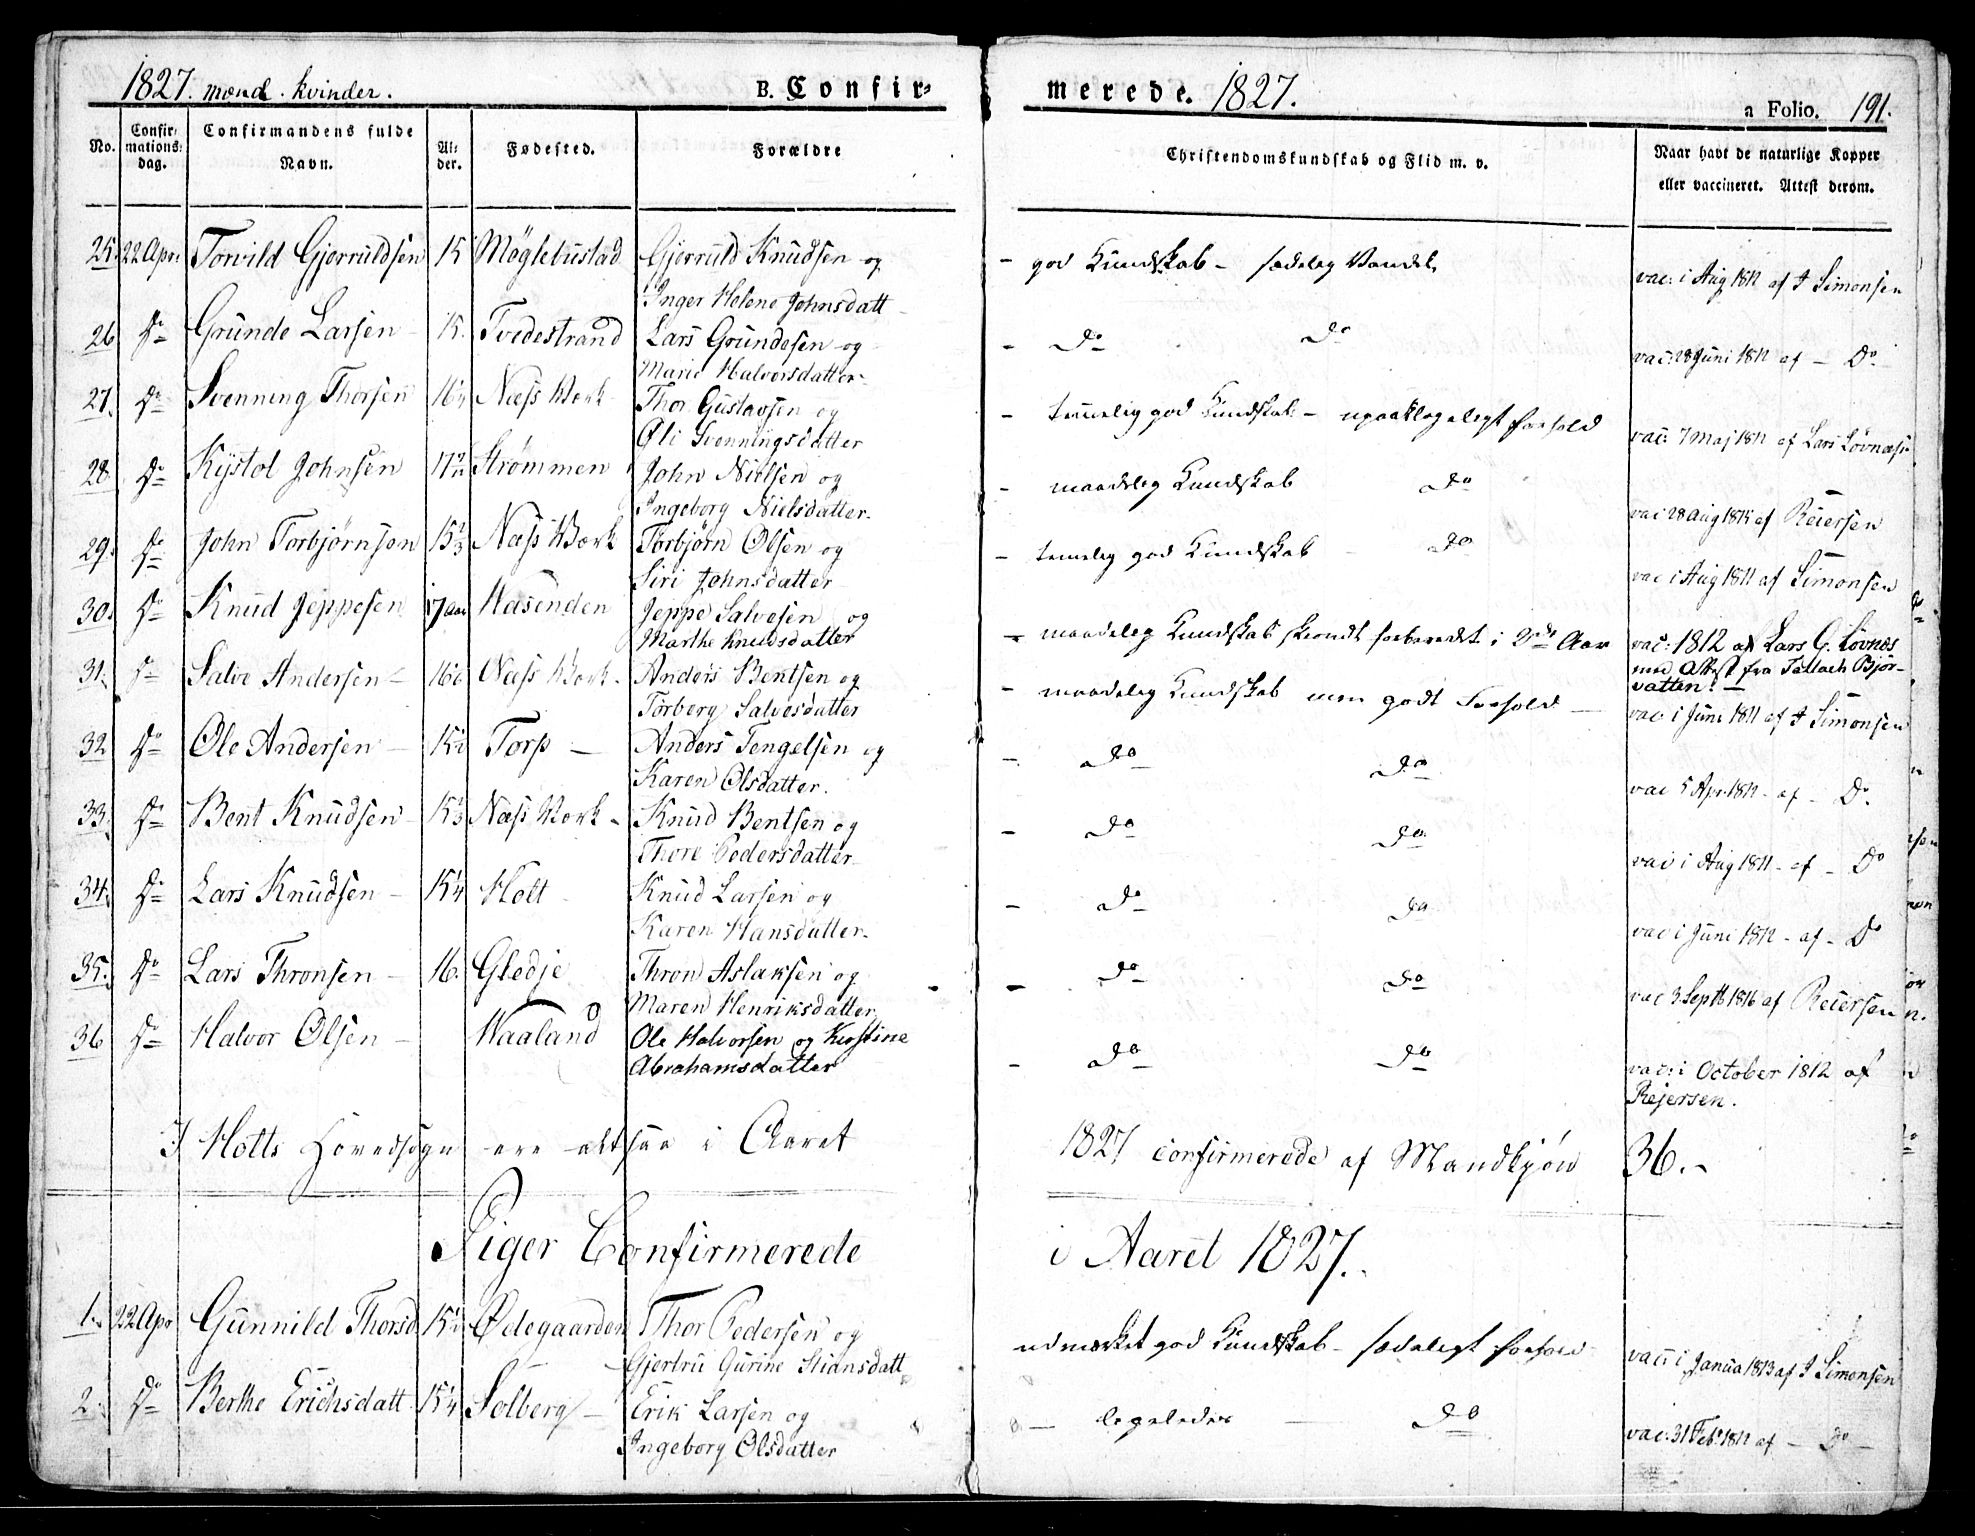 1827. mænd. kvinder.
B. Confir-
merede. 1827.
a Folio. 191.
No.
Confir-
mations-
dag.
Confirmandens fulde
Navn.
Al-
der.
Fødested.
Forældre
Christendomskundskab og Flid m. v.
Naar havt de naturlige Kopper
eller vaccineret. Attest derom.
25. 22 Apr. Torvild Gjerruldsen 15 Møglebustad Gjerruld Knudsen og
Inger Helene Johnsdatt
- god Kundskab - sædelig Vandel.
vac: i Aug 1812 af J Simonsen
26 Do Grunde Larsen - 15. Tvedestrand Lars Grundesen og
Marie Halvorsdatter
- Do Do
vac: 28 Juni 1812 af - Do
27. Do Svenning Thorsen 16 Næss Værk Thor Gustavsen og
Øli Svenningsdatter
- temmelig god Kundskab - upaaklageligt Forhold
vac: 7 Maj 1812 af Lars Løvnæs
28 Do Kystol Johnsen 17 Strømmen John Nielsen og
Ingeborg Nielsdatter.
- maadelig Kundskab Do
vac 28 Aug af Reiersen
29. Do John Torbjørnsen 15 1/3 Næss Værk Torbjørn Olsen og
Siri Johnsdatter
- temmelig god Kundskab - Do
vac i Aug 1811 af Simonsen
30. Do Knud Jeppesen 17 aar Hasenden Jeppe Salvesen og
Marthe Knudsdatter
- maadelig Kundskab skiøndt forberedt i 2de Aar
vac: 1812 af Lars G. Løvnes
med Attest fra Tallach Bjor-
vatten. -
31. Do Salve Andersen - 16 Næss Værk - Anders Bentsen og
Torberg Salvesdatter
- maadelig Kundskab men godt Forhold -
vac i Juni 1811 af J Simonsen
32 Do Ole Andersen - 15 1/2 Torp - Anders Tengelsen og
Karen Olsdatter.
- Do Do
vac 5 Apr. 1812 - af - Do.
33. Do Bent Knudsen - 15 1/3 Næss Værk - Knud Bentsen og
Thore Pedersdatter
- Do Do
vac i Aug 1811 - af - Do
34. Do Lars Knudsen - 15 1/4 Holt - Knud Larsen og
Karen Hansdatter.
- Do Do
vac i Juni 1812 - af - Do
35. Do Lars Thronsen - 16. Gledje Thron Aslaksen og
Maren Henriksdatter
- Do Do
vac 3 Septb 1816 af Reiersen
36 Do Halvor Olsen - Waaland Ole Halvorsen og Kirstine
Abrahamsdatter
- Do Do
vac: i October 1812 af
Rejersen.
I Holts Hovedsogn ere altsaa i Aaret 1827 confirmerede af Mandkjøn 36. -
Piger Confirmerede i Aaret 1827.
1. 22 Apr Gunnild Thorsd 15 1/2 Ødegaarden Thor Pedersen og
Gjertru Gurine Stiansdatt
udmærket god Kundskab - sædeligt Forhold
vac: i Janua 1813 af J Simonsen
2. Do Berthe Erichsdatt 15 1/4 Solberg - Erik Larsen og
Ingeborg Olsdatter
- ligeledes - Do
vac: 31 Feb. 1812 af - Do -